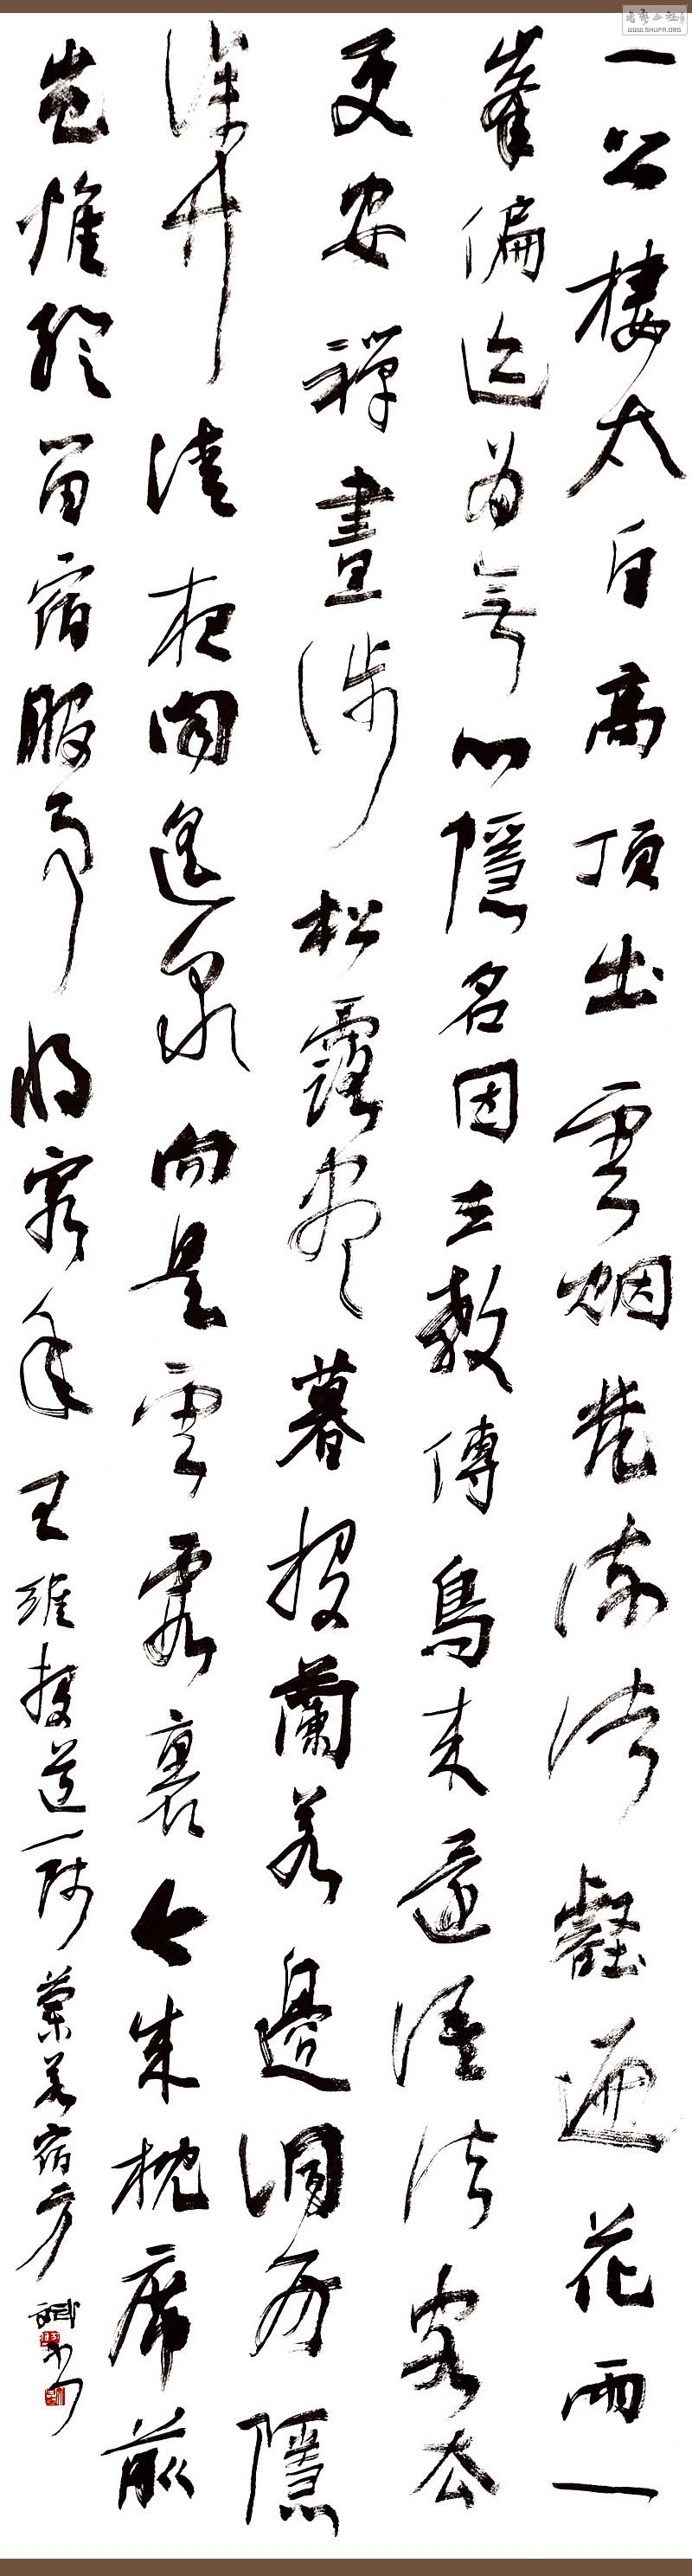 一公棲太白高頂出雲烟梵流諸壑遍花雨一
峯偏迹為無心隱名因立教傳鳥来還語法客去
更安禪晝涉松露盡暮投蘭若邊洞房隱
深竹清夜聞遙泉向是雲霞裏今成枕席前
豈惟留宿服事將窮年 王維投道一師蘭若宿 方斌書
WWW.SHUFA.ORG